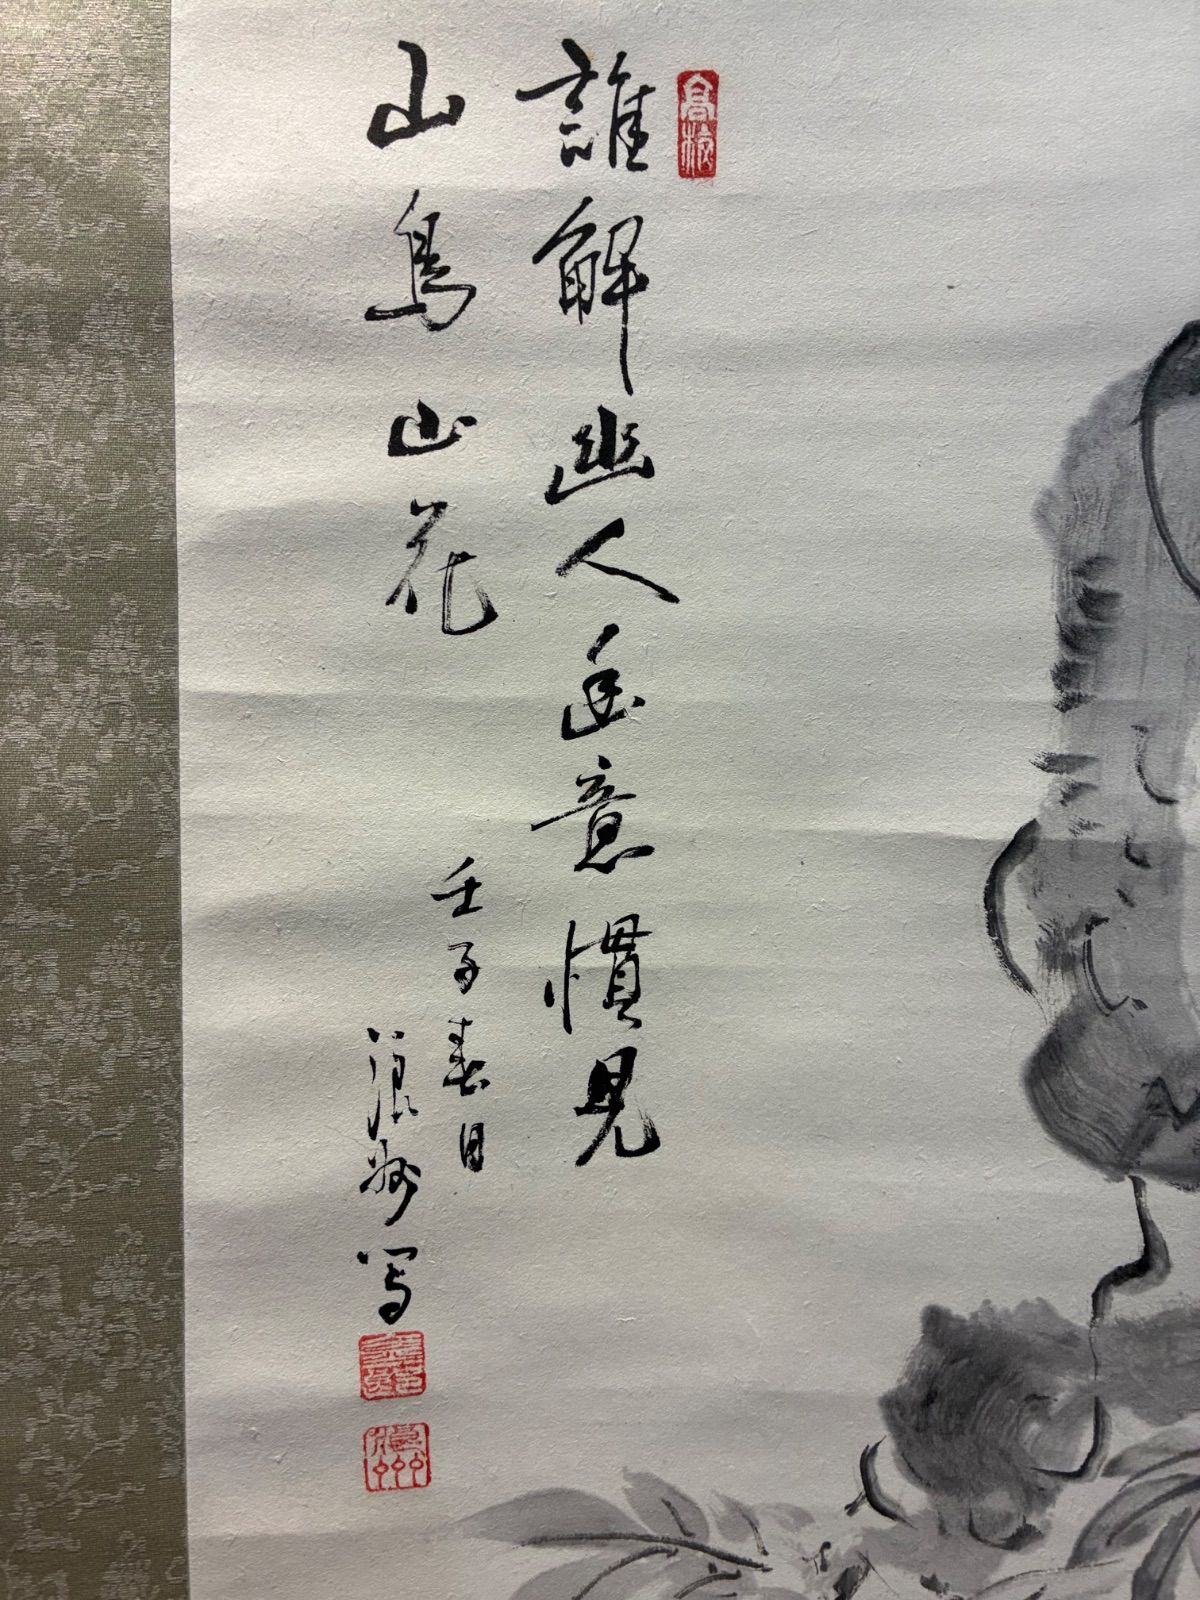 誰解幽人幽意慣見
山鳥山花
壬子春日
浪州写